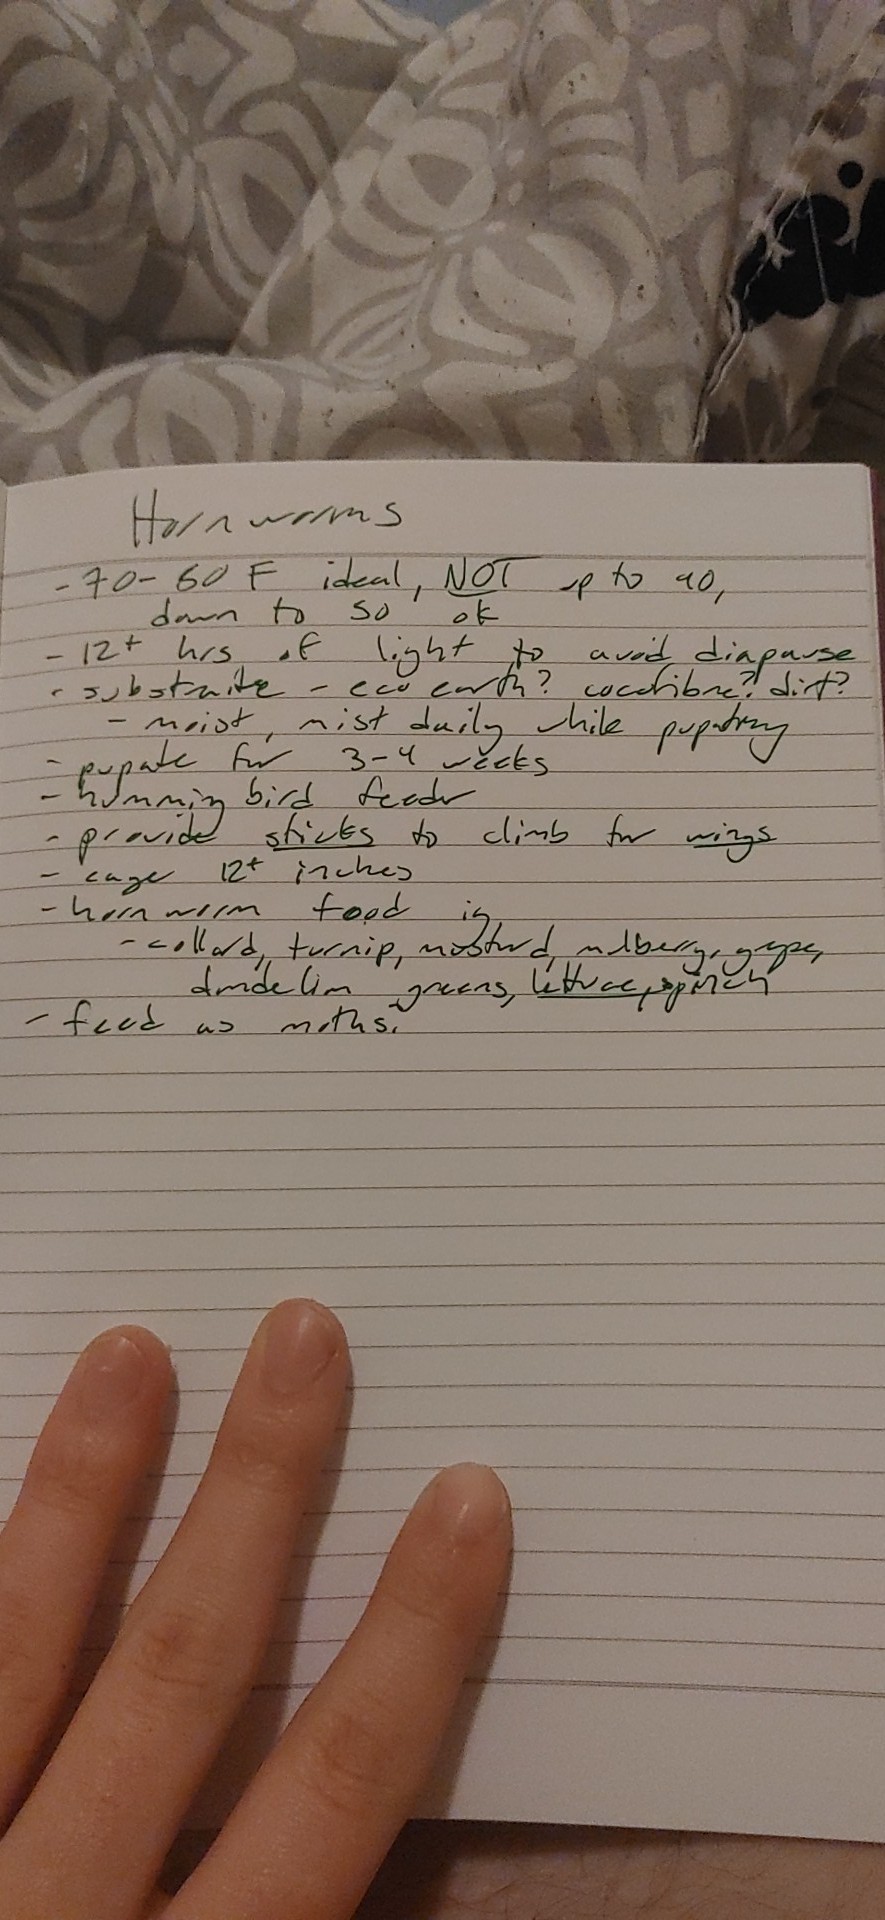 Hornworms
- 70-60 F ideal, NOT up to 90,
down to 50 ok
- 12+ hrs of light to avoid diapause
- substraite - eco earth? cocofibre? dirt?
- moist, mist daily while pupating
- pupate for 3-4 weeks
- humming bird feeder
- provide sticks to climb for wings
- cage 12+ inches
- hornworm food is
- collard, turnip, musturd, mulberry, grape,
dandelion greens, lettuce, spinach
- feed as moths.